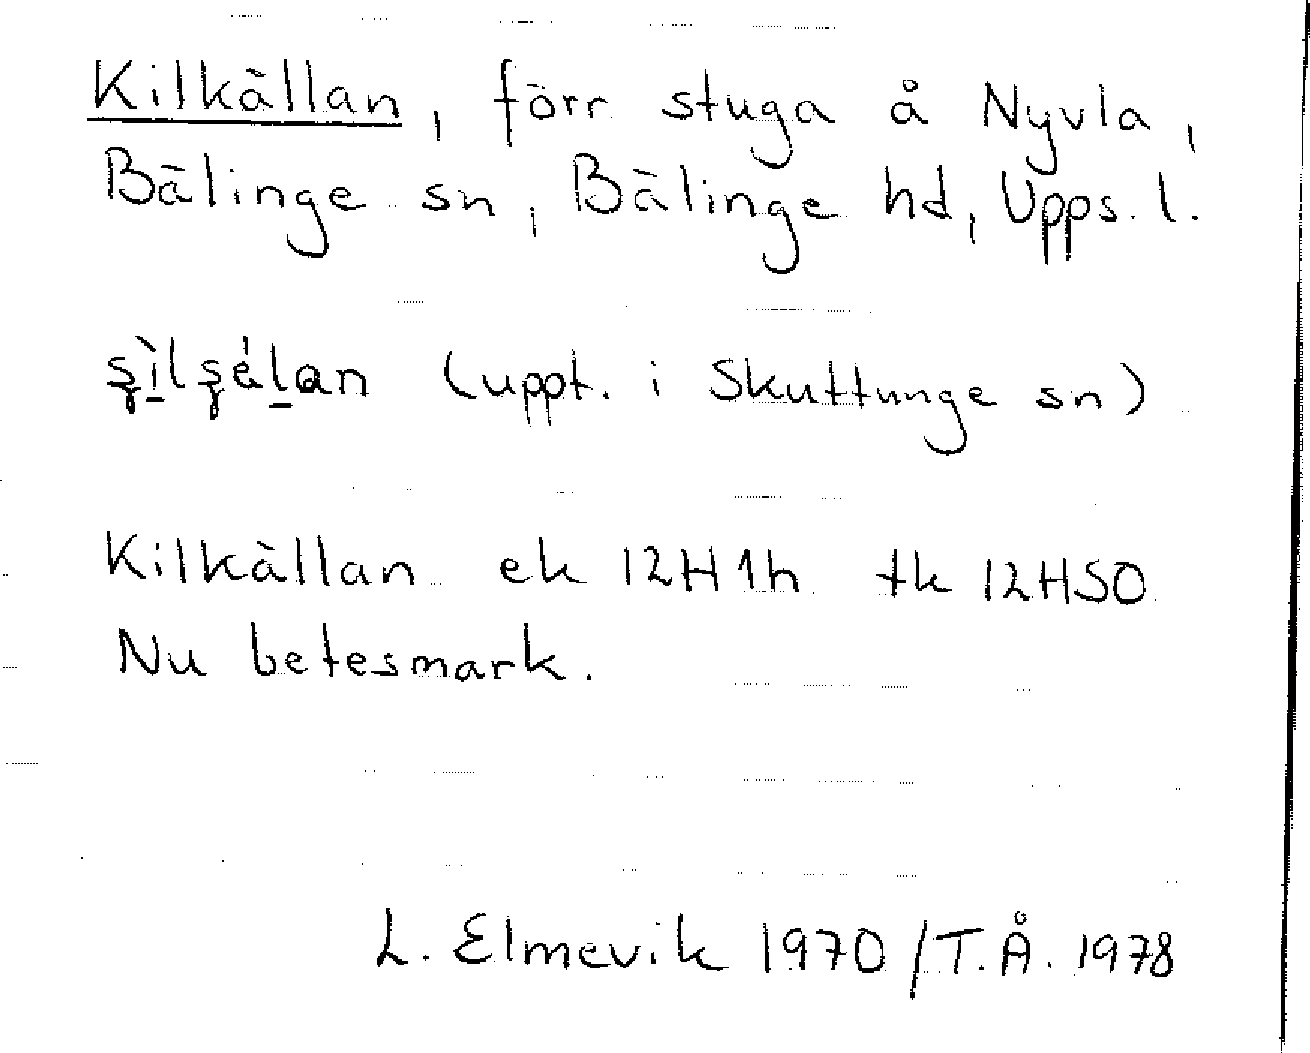 Kilkällan, förr stuga å Nyvla,
Bälinge sn, Bälinge hd, Upps. l.
ʂìlʂélan (uppt. i Skuttunge sn)
Kilkällan ek 12H1h tk 12HSO
Nu betesmark.
L. Elmevik 1970/T.Å. 1978